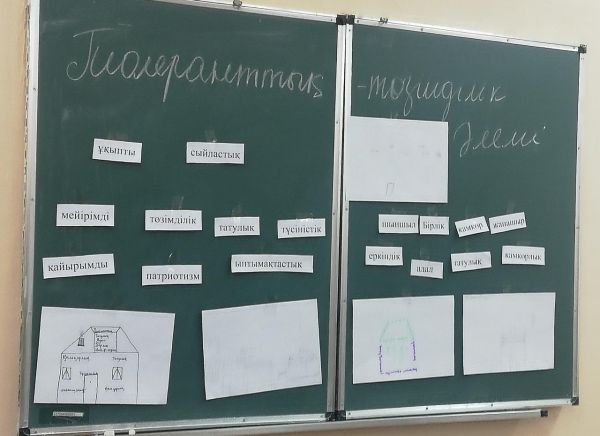 Толеранттық
ұқыпты сыйластық
мейірімді төзімділік татулық түсіністік
қайырымды патриотизм ынтымақтастық
-төзімділік
әлемі
шыншыл Бірлік қамқор жанашыр
еркіндік адал татулық қамқорлық